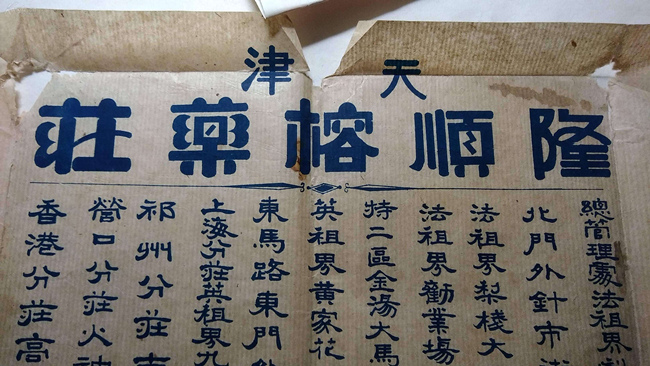 天津
隆順榕藥莊
總管理處法租界
北門外針市街
法租界梨棧大
法租界勸業場
特二區金湯大馬
英租界黃家花
東馬路東門外
上海分莊英租界九
祁州分莊南
營口分莊火神
香港分莊高